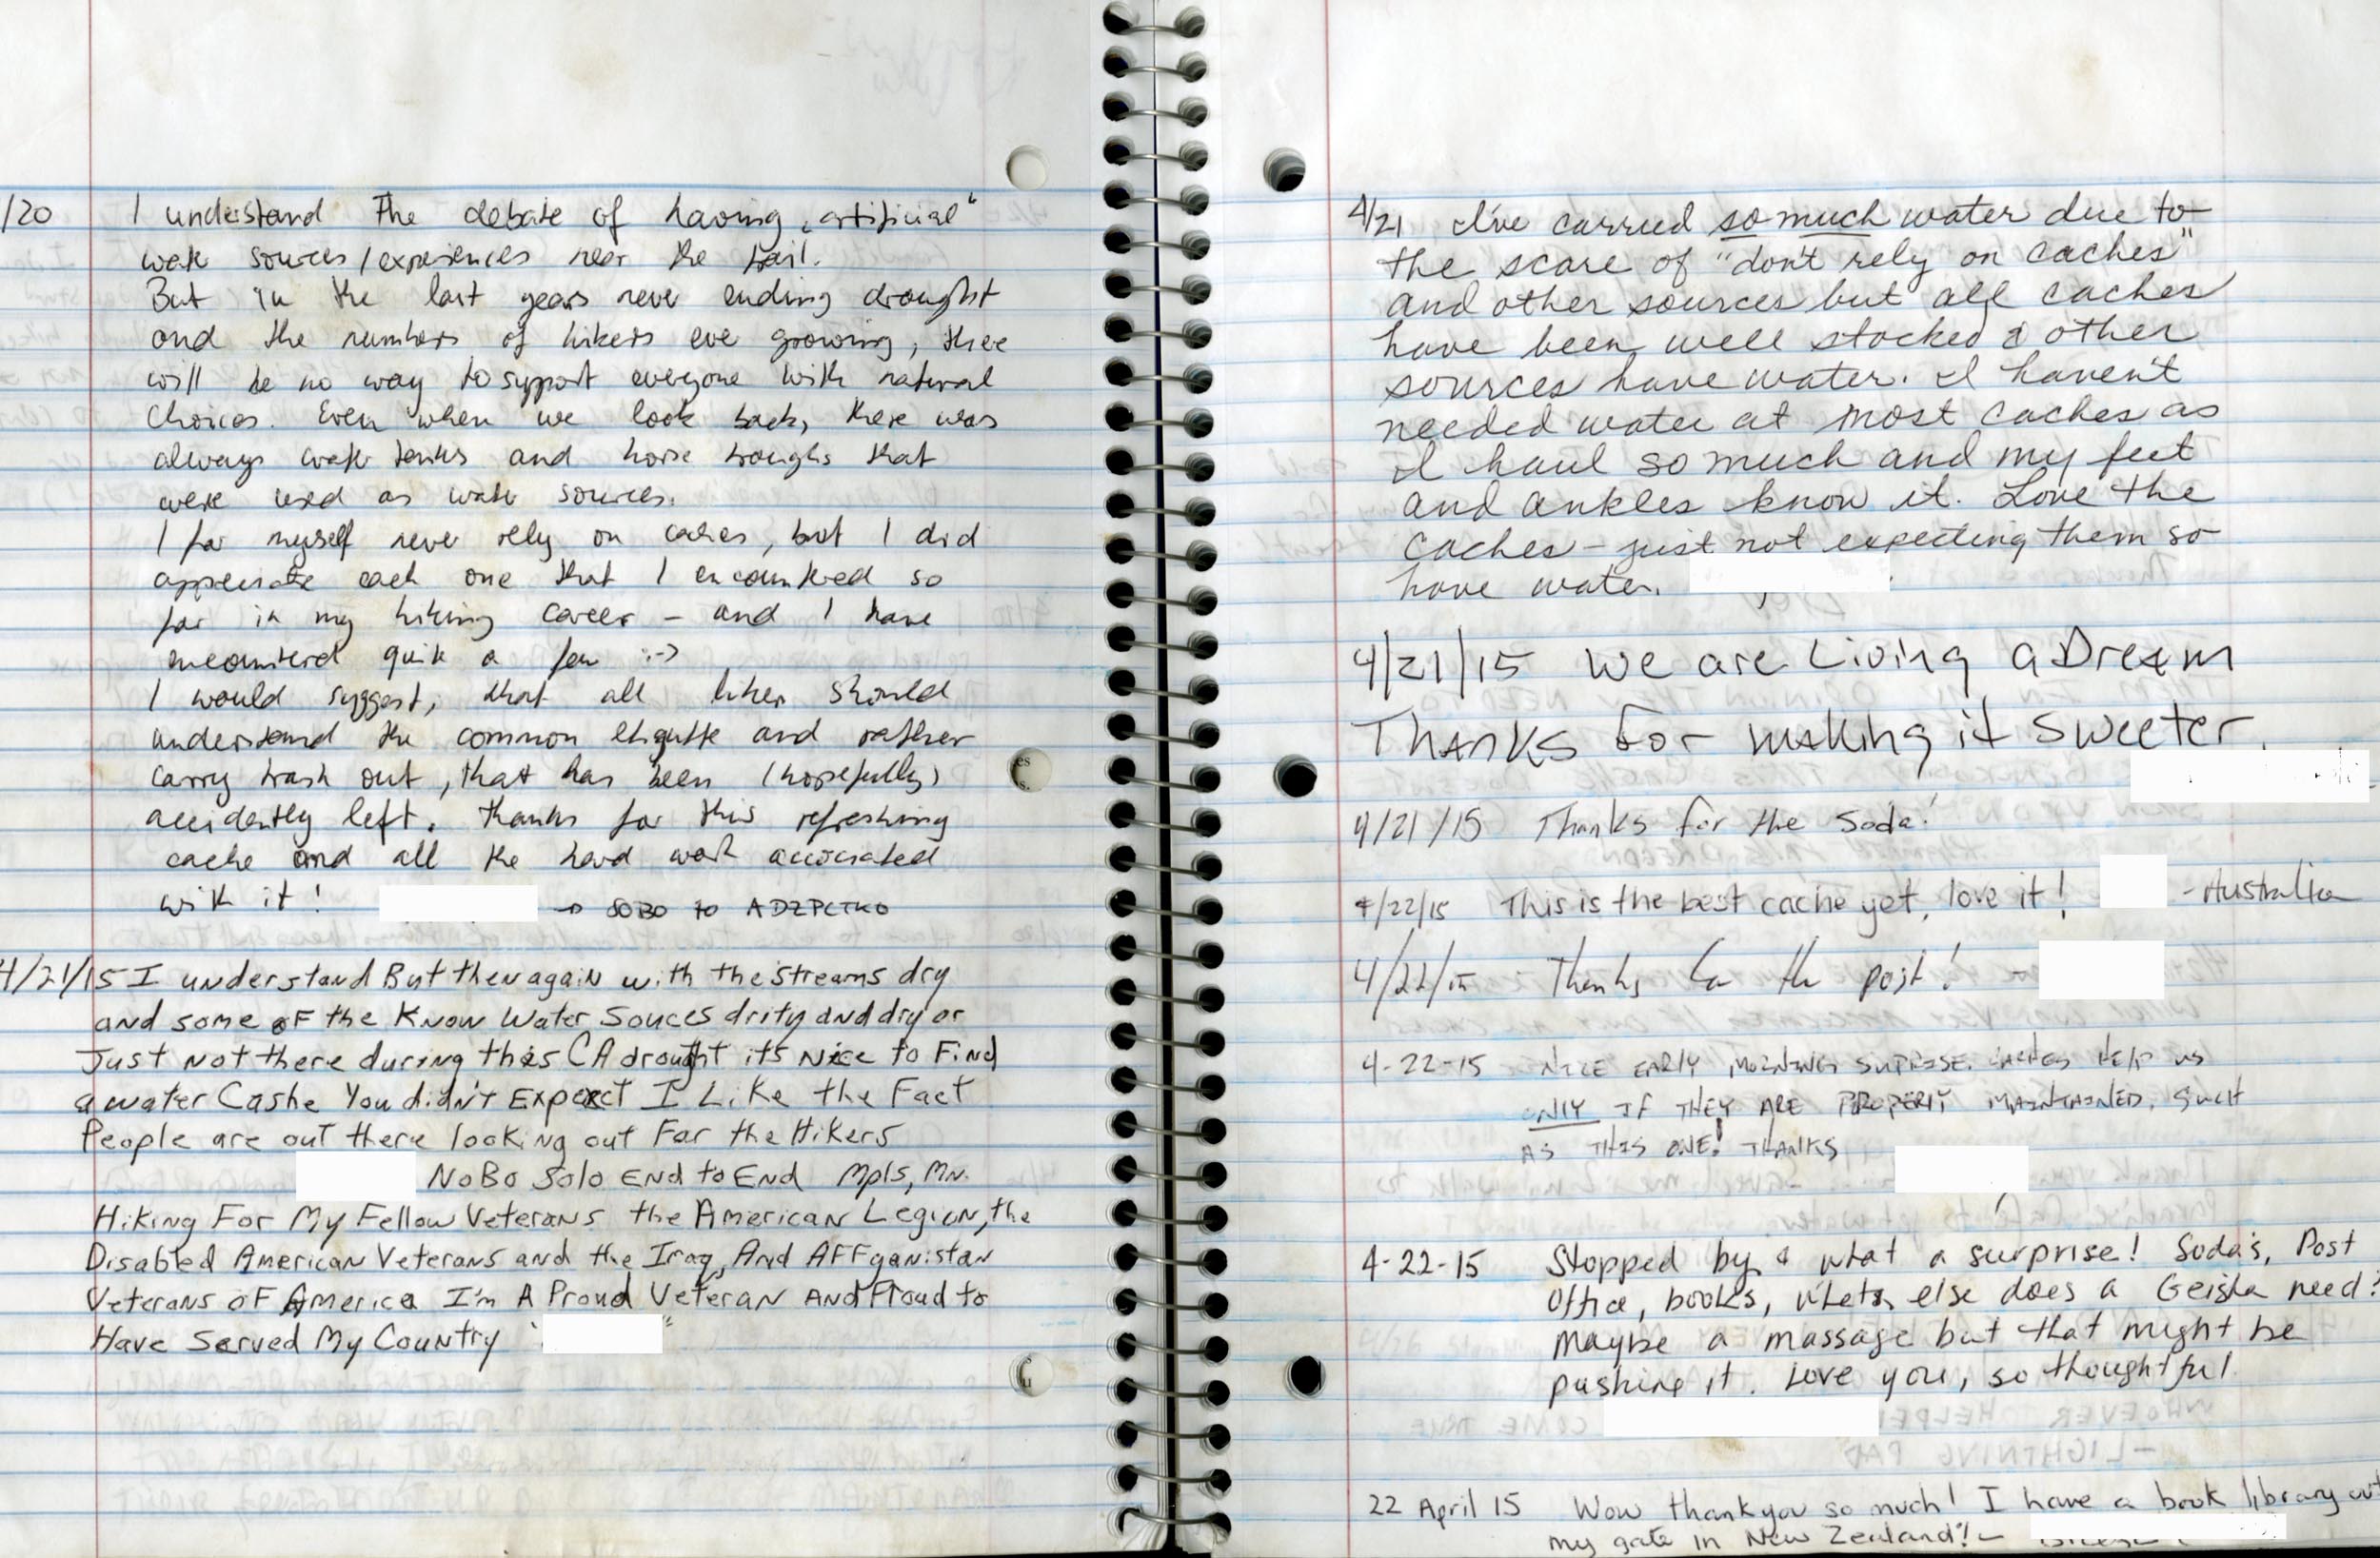 /20 I understand the debate of having „artificial“
wate sources/experiences near the trail.
But in the last years never ending drought
and the numbers of hikers eve growing, there
will be no way to support everyone with natural
choices. Even when we look back, there was
always water tanks and horse troughs that
were used as water sources.
I for myself never rely on caches, but I did
appreciate each one that I encountered so
far in my hiking career – and I have
encountered quite a few :-)
I would suggest, that all hiker should
understand the common etiquette and rather
carry trash out, that has been (hopefully)
accidently left. Thanks for this refreshing
cache and all the hard work associated
with it! → SOBO to
4/21/15 I understand But then again with the Streams dry
and some of the Know Water Souces drity and dry or
Just not there during this CA drought its Nice to Find
a water Cashe You didn't Expect I Like the Fact
People are out there looking out For the Hikers
NoBo Solo End to End Mpls, Mn.
Hiking For My Fellow Veterans the American Legion, the
Disabled American Veterans and the Iraq, And AFFganistan
Veterans oF America I'm A Proud Veteran And Proud to
Have Served My Country " "
4/21 I've carried so much water due to
the scare of "don't rely on caches"
and other sources but all caches
have been well stocked & other
sources have water. I haven't
needed water at most caches as
I haul so much and my feet
and ankles know it. Love the
caches – just not expecting them so
have water.
4/21/15 We are Living a Dream
Thanks For making it Sweeter.
4/21/15 Thanks for the Soda!
4/22/15 This is the best cache yet, love it! - Australia
4/22/15 Thanks for the post! -
4-22-15 NICE EARLY MORNING SUPRISE. CACHES HELP US
ONLY IF THEY ARE PROPERLY MAINTAINED, SUCH
AS THIS ONE! THANKS
4-22-15 Stopped by & what a surprise! Soda's, Post
Office, books, whats else does a Geisha need?
Maybe a massage but that might be
pushing it. Love you, so thoughtful
22 April 15 Wow thankyou so much! I have a book library out
my gate in New Zealand! ~